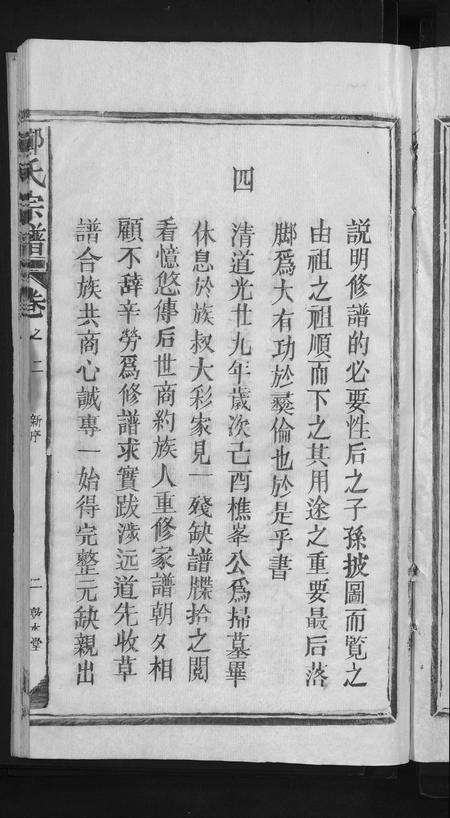 説明修譜的必要性后之子孫披圖而覽之
由祖之祖順而下之其用途之重要最后落
脚爲大有功於彜倫也於是乎書
四
清道光廿九年歲次己酉樵峯公爲掃墓畢
休息於族叔大彩家見一殘缺譜牒拾之閱
看憶悠傳后世商約族人重修家譜朝夕相
顧不辭辛勞爲修譜求實跋涉远道先收草
譜合族共商心誠專一始得完整元缺親出
氏宗譜
卷之二
新序
二
敦本堂